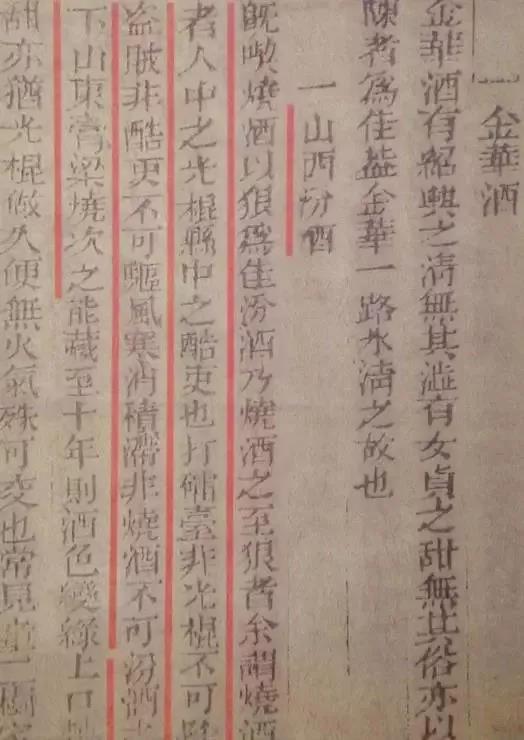 一金華酒
金華酒有紹興之清無其澁有女貞之甜無其俗亦以
陳者爲佳蓋金華一路水清之故也
一山西汾酒
既喫燒酒以狠爲佳汾酒乃燒酒之至狠者余謂燒酒
者人中之光棍縣中之酷吏也打擂臺非光棍不可除
盜賊非酷吏不可驅風寒消積滯非燒酒不可汾酒之
下山東膏梁燒次之能藏至十年則酒色變綠上口
甜亦猶光棍做久便無火氣殊可交也常見童二樹